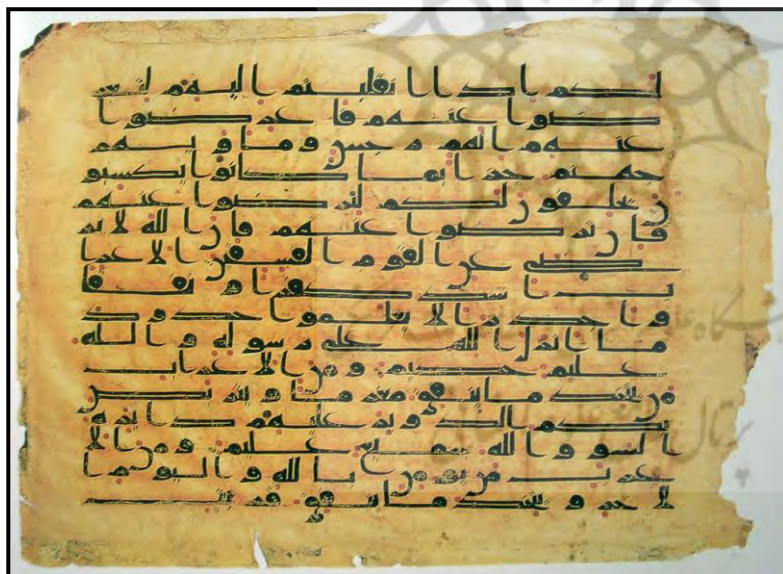 لكم اذا انقلبتم اليهم لتعر
ضوا عنهم فا عر ضوا
عنهم انهم رجس وماويهم
جهنم جزا بما كانوا يكسبو
ن يحلفون لكم لترضوا عنهم
فان ترضوا عنهم فان الله لا ير
ضى عن القوم الفسقين الاعرا
ب اشد كفرا و نفاقا
و اجدر الا يعلموا حدود
ما انزل الله على رسوله و الله
عليم حكيم و من الاعراب
من يتخذ ما ينفق مغرما و يتربص
بكم الدوير عليهم دايرة
السو و الله سميع عليم و من الا
عراب من يومن بالله و اليوم ا
لاخر و يتخذ ما ينفق قربت